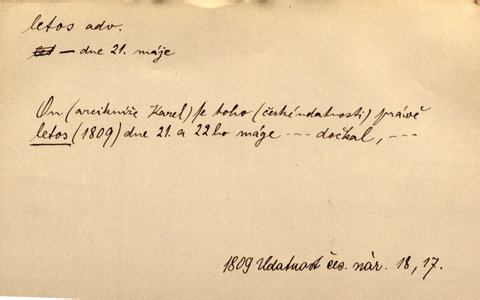 letos adv.
— dne 21. máje
On (arcikníže Karel) se toho (české udatnosti) právě
letos (1809) dne 21. a 22ho máge --- dočkal, ---
1809 Udatnost čes. nár. 18, 17.